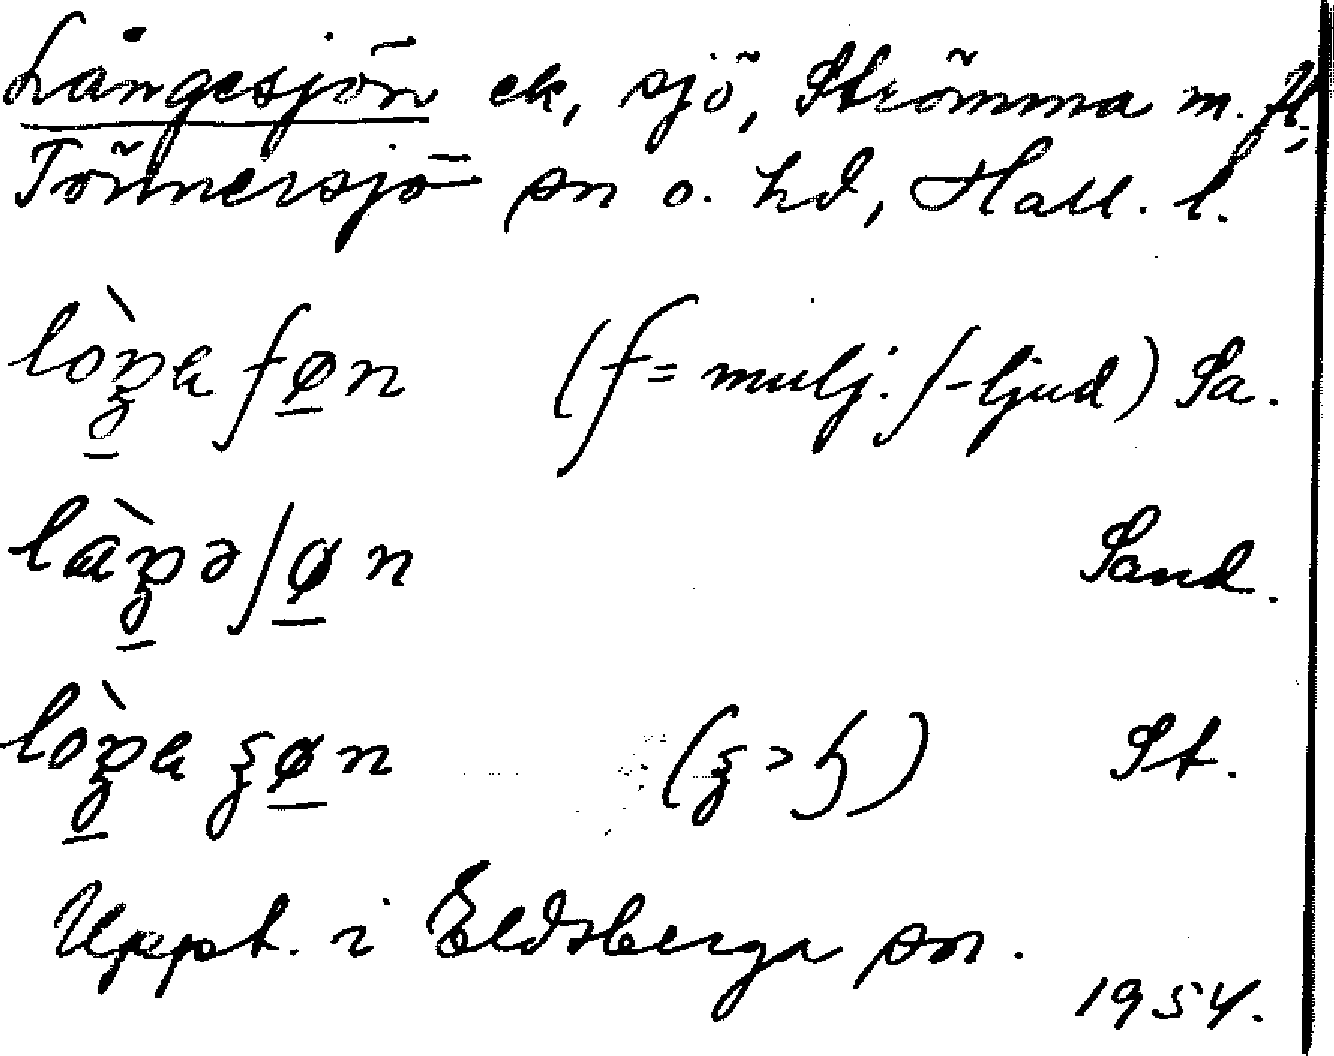 Långesjön ek, sjö, Strömma m. fl.,
Tönnersjö sn o. hd, Hall. l.
(ʄ = mulj. ʃ-ljud) Sa.
Sand.
St.
Uppt. i Eldsberga sn.
1954.